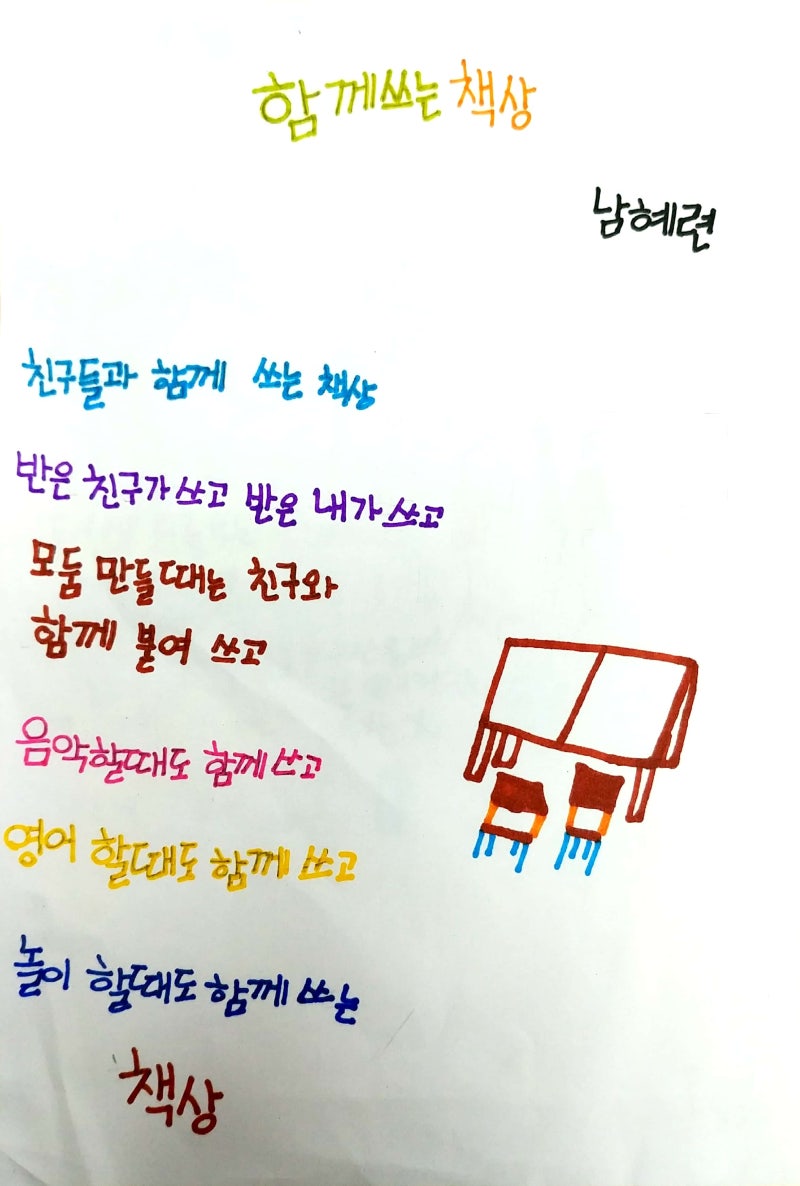 함께쓰는 책상
남혜련
친구들과 함께 쓰는 책상
반은 친구가 쓰고 반은 내가 쓰고
모둠 만들때는 친구와
함께 붙여 쓰고
음악할때도 함께 쓰고
영어 할때도 함께 쓰고
놀이 할때도 함께 쓰는
책상